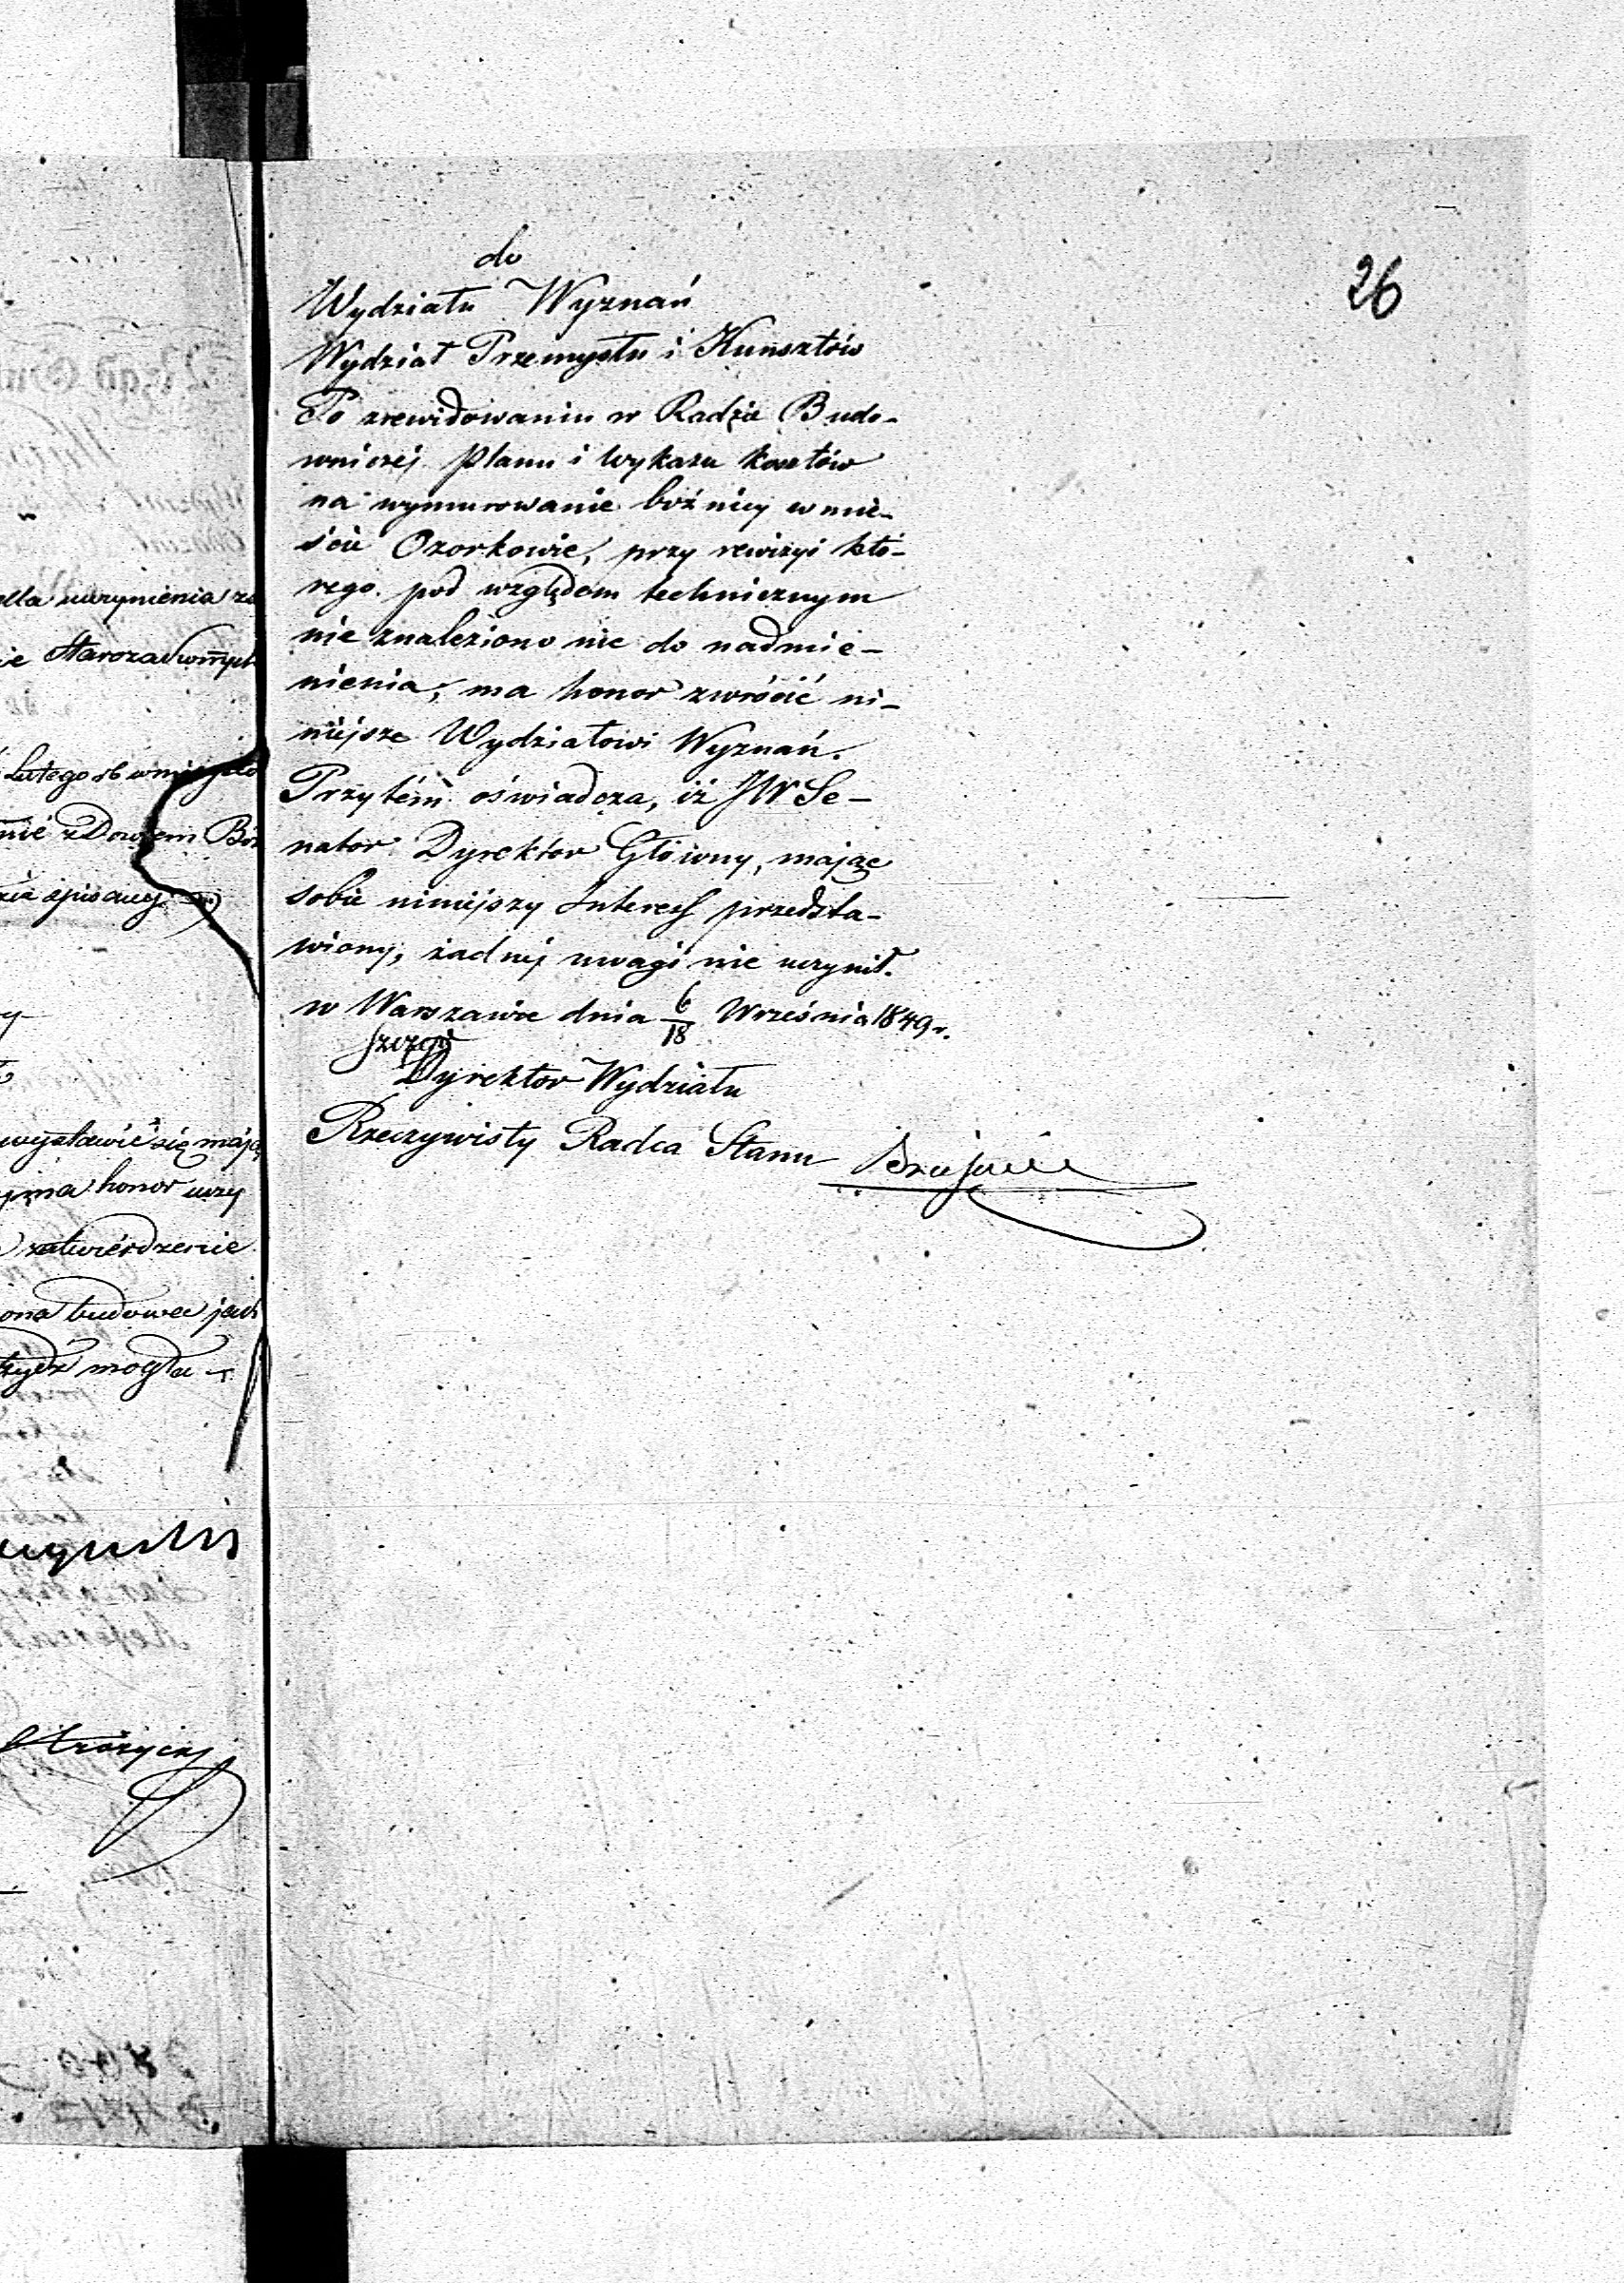 26
do
Wydziału Wyznań
Wydział Przemysłu i Kunsztów
Po zrewidowaniu w Radzie Budo-
wniczej planu i wykazu kosztów
na wymurowanie bóźnicy w mie-
ście Ozorkowie, przy rewizyi któ-
rego pod względem technicznym
nie znaleziono nic do nadmie-
nienia, ma honor zwrócić ni-
niejsze Wydziałowi Wyznań.
Przytém oświadcza, iż JW Se-
nator Dyrektor Główny, mając
sobie niniejszy Interess przedsta-
wiony, żadnej uwagi nie uczynił.
w Warszawie dnia 6/18 Września 1849 r.
Dyrektor Wydziału
Rzeczywisty Radca Stanu
dla uczynienia
Starozakonnych
Lutego rb w miejsce
z Dozorem Bóż
spisany
wystawić się mają
ma honor uczy
zatwierdzenie
budowa
mogła